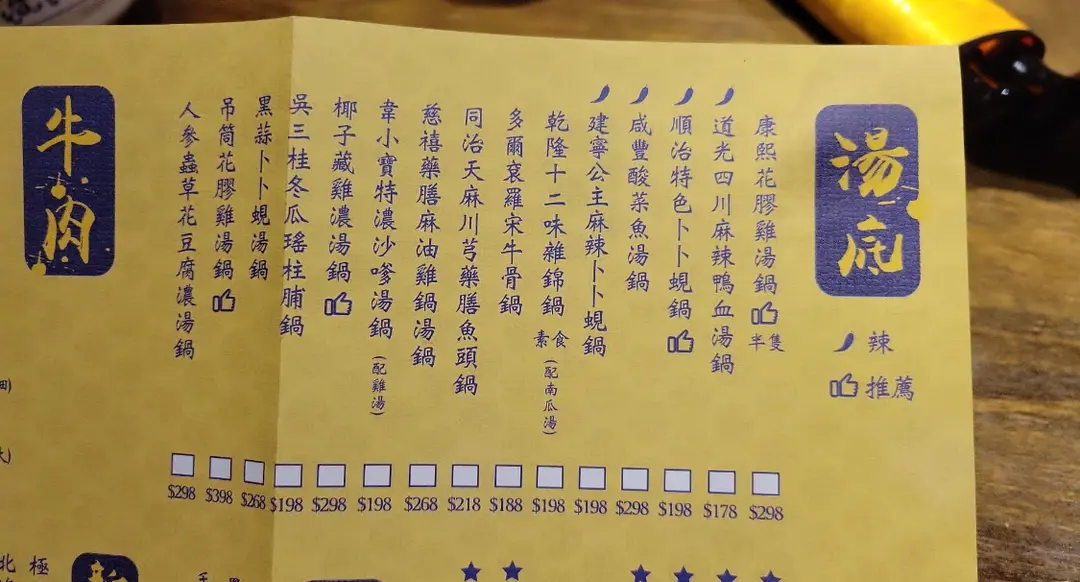 湯底
辣
推薦
康熙花膠雞湯鍋
半隻
$298
道光四川麻辣鴨血湯鍋
$178
順治特色卜卜蜆鍋
$198
咸豐酸菜魚湯鍋
$298
建寧公主麻辣卜卜蜆鍋
$198
乾隆十二味雜錦鍋
素食
(配南瓜湯)
$198
多爾袞羅宋牛骨鍋
$188
同治天麻川芎藥膳魚頭鍋
$218
慈禧藥膳麻油雞鍋湯鍋
$268
韋小寶特濃沙嗲湯鍋
(配雞湯)
$198
椰子藏雞濃湯鍋
$298
吳三桂冬瓜瑤柱脯鍋
$198
黑蒜卜卜蜆湯鍋
$268
吊筒花膠雞湯鍋
$398
人參蟲草花豆腐濃湯鍋
$298
牛肉
極
北